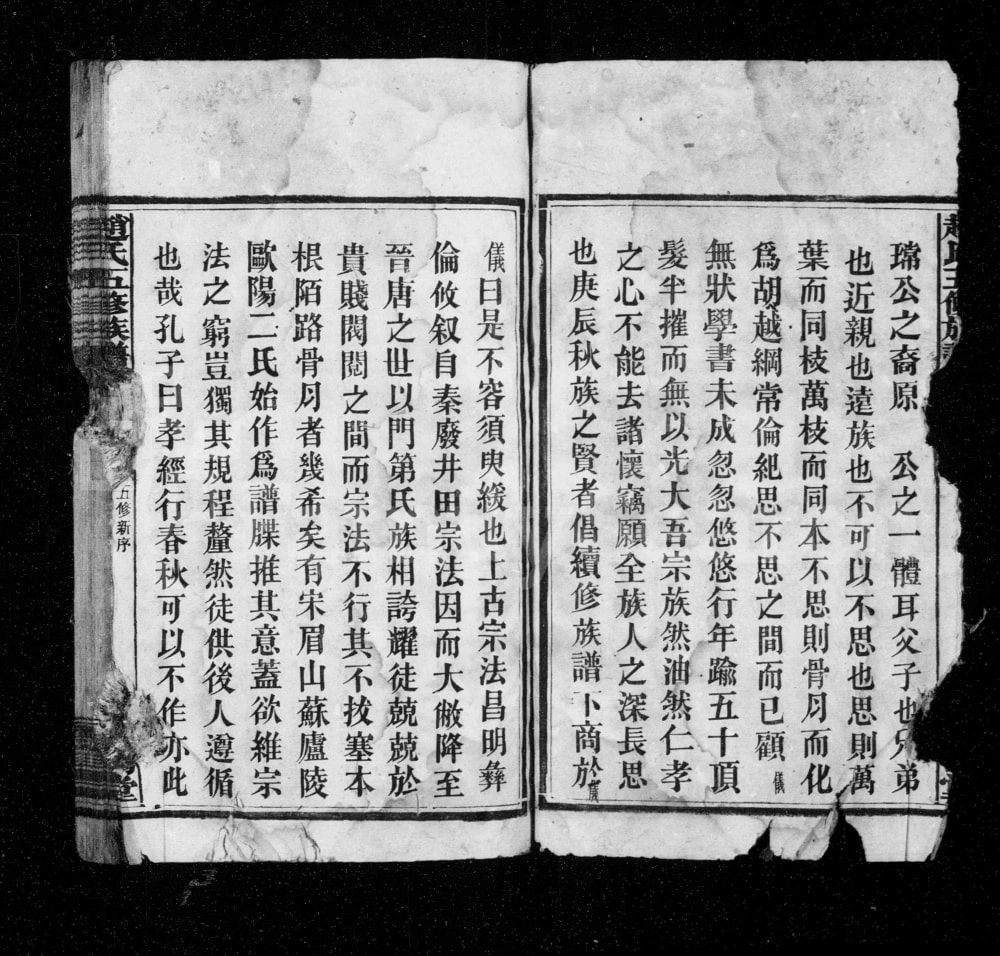 瑺公之裔原　公之一體耳父子也兄弟
也近親也遠族也不可以不思也思則萬
葉而同枝萬枝而同本不思則骨肉而化
爲胡越綱常倫紀思不思之間而已顧儀
無狀學書未成忽忽悠悠行年踰五十頂
髮半摧而無以光大吾宗族然油然仁孝
之心不能去諸懷竊願全族人之深長思
也庚辰秋族之賢者倡續修族譜下商於儀
儀曰是不容須臾緩也上古宗法昌明彝
倫攸叙自秦廢井田宗法因而大敝降至
晉唐之世以門第氏族相誇耀徒兢兢於
貴賤閥閱之間而宗法不行其不拔塞本
根陌路骨肉者幾希矣有宋眉山蘇廬陵
歐陽二氏始作爲譜牒推其意蓋欲維宗
法之窮豈獨其規程釐然徒供後人遵循
也哉孔子曰孝經行春秋可以不作亦此
趙氏五修族譜
五修新序
堂